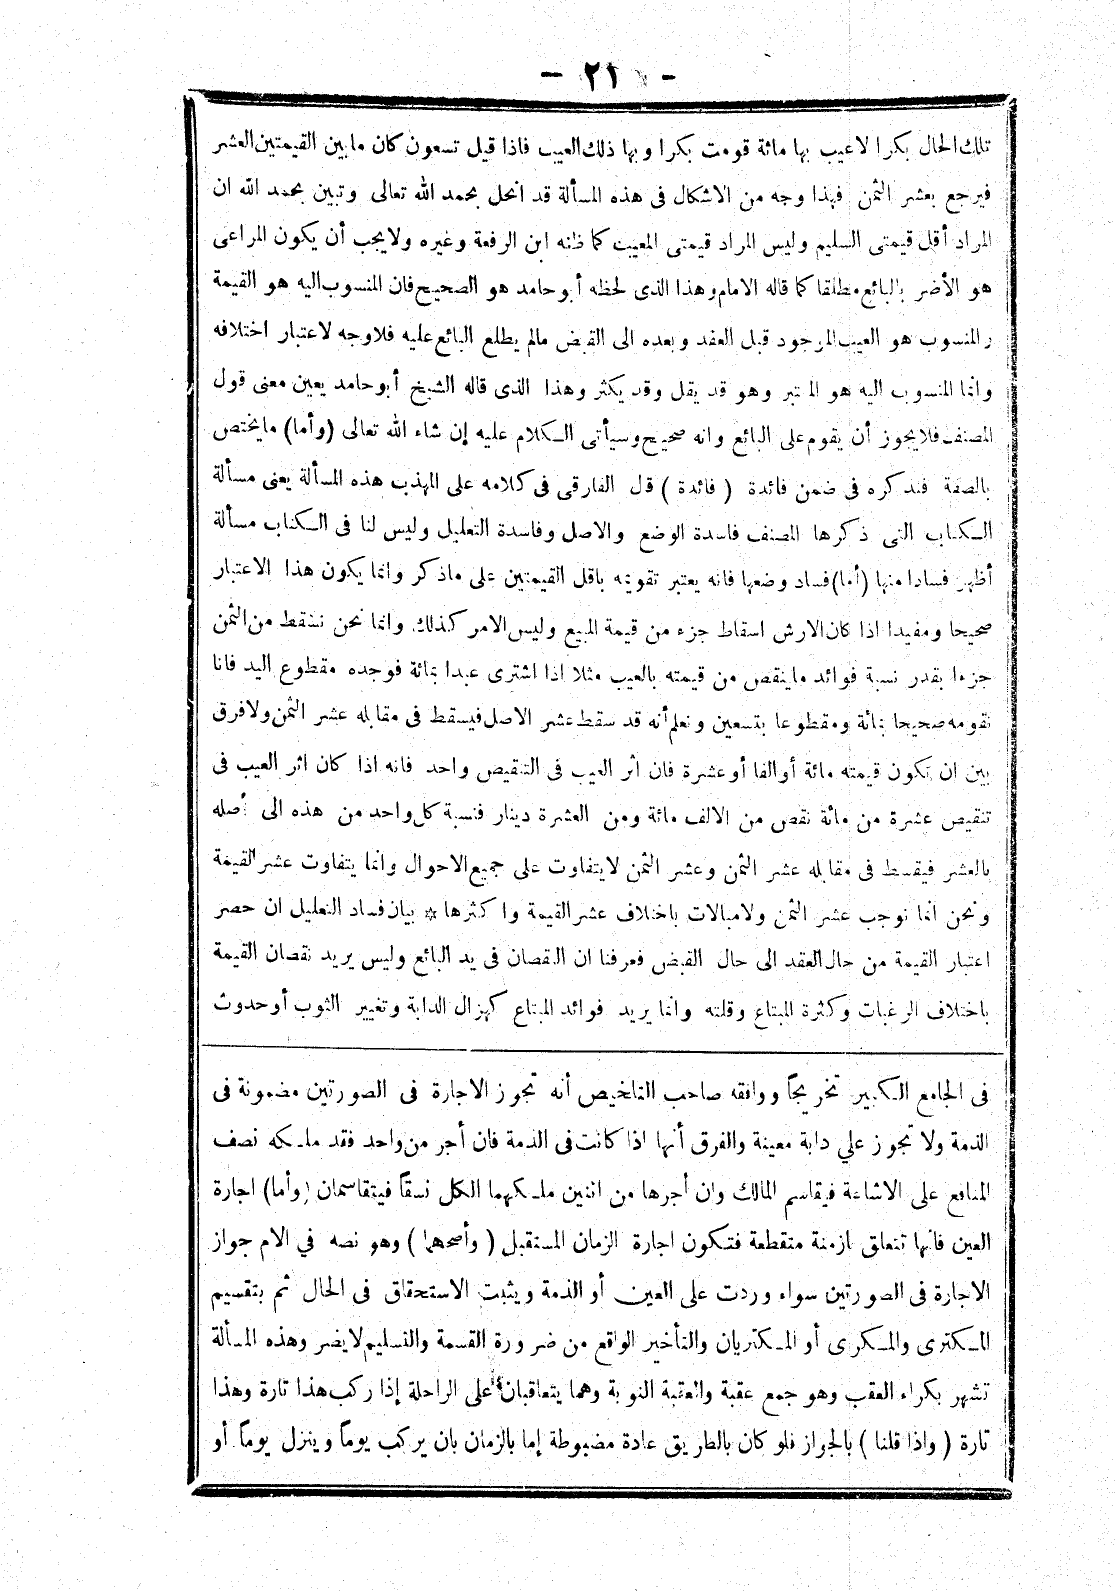 - ٢١ -
تلك الحال بكرا لاعيب بها مائة قومت بكرا وبها ذلك العيب فاذا قيل تسعون كان مابين القيمتين العشر
فيرجع بعشر الثمن فهذا وجه من الاشكال فى هذه المسألة قد انحل بحمد الله تعالى وتبين بحمد الله ان
المراد أقل قيمتى السليم وليس المراد قيمتى المعيب كما ظنه ابن الرفعة وغيره ولايجب أن يكون المراعى
هو الأضر بالبائع مطلقا كما قاله الامام وهذا الذى لحظه أبو حامد هو الصحيح فان المنسوب اليه هو القيمة
والمنسوب هو العيب الموجود قبل العقد وبعده الى القبض مالم يطلع البائع عليه فلاوجه لاعتبار اختلافه
وانما المنسوب اليه هو المعتبر وهو قد يقل وقد يكثر وهذا الذى قاله الشيخ أبو حامد يعين معنى قول
المصنف فلايجوز أن يقوم على البائع وانه صحيح وسيأتى الكلام عليه إن شاء الله تعالى (وأما) مايختص
بالصفة فنذكره فى ضمن فائدة ( فائدة ) قل الفارقى فى كلامه على المهذب هذه المسألة يعنى مسألة
الكتاب التى ذكرها المصنف فاسدة الوضع والاصل وفاسدة التعليل وليس لنا فى الكتاب مسألة
أظهر فسادا منها (أما) فساد وضعها فانه يعتبر تقويمه باقل القيمتين على ماذكر وانما يكون هذا الاعتبار
صحيحا ومفيدا اذا كان الارش اسقاط جزء من قيمة المبيع وليس الامر كذلك وانما نحن نسقط من الثمن
جزءا بقدر نسبة فوائد ماينقص من قيمته بالعيب مثلا اذا اشترى عبدا بمائة فوجده مقطوع اليد فانا
نقومه صحيحا بمائة ومقطوعا بتسعين ونعلم أنه قد سقط عشر الاصل فيسقط فى مقابله عشر الثمن ولافرق
بين ان يكون قيمته مائة أو الفا أو عشرة فان اثر العيب فى التنقيص واحد فانه اذا كان اثر العيب فى
تنقيص عشرة من مائة نقص من الالف مائة ومن العشرة دينار فنسبة كل واحد من هذه الى أصله
بالعشر فيقسط فى مقابله عشر الثمن وعشر الثمن لايتفاوت على جميع الاحوال وانما يتفاوت عشر القيمة
ونحن انما نوجب عشر الثمن ولامبالات باختلاف عشر القيمة واكثرها * بيان فساد التعليل ان حصر
اعتبار القيمة من حال العقد الى حال القبض فعرفنا ان النقصان فى يد البائع وليس يريد نقصان القيمة
باختلاف الرغبات وكثرة المبتاع وقلته وانما يريد فوائد المبتاع كهزال الدابة وتغيير الثوب أو حدوث
فى الجامع الكبير تخريجاً ووافقه صاحب التلخيص أنه تجوز الاجارة فى الصورتين مضمونة فى
الذمة ولا تجوز علي دابة معينة والفرق أنها اذا كانت فى الذمة فان أجر من واحد فقد ملكه نصف
المنافع على الاشاعة فيقاسم المالك وان أجرها من اثنين ملكهما الكل نسقاً فيتقاسمان (وأما) اجارة
العين فانها تتعلق بازمنة متقطعة فتكون اجارة الزمان المستقبل ( وأصحهما ) وهو نصه في الام جواز
الاجارة فى الصورتين سواء وردت على العين أو الذمة ويثبت الاستحقاق فى الحال ثم بتقسيم
المكترى والمكرى أو المكتريان والتأخير الواقع من ضرورة القسمة والتسليم لايضر وهذه المسألة
تشهر بكراء العقب وهو جمع عقبة والعقبة النوبة وهما يتعاقبان على الراحلة إذا ركب هذا تارة وهذا
تارة ( واذا قلنا ) بالجواز فلو كان بالطريق عادة مضبوطة إما بالزمان بان يركب يوماً وينزل يوماً أو